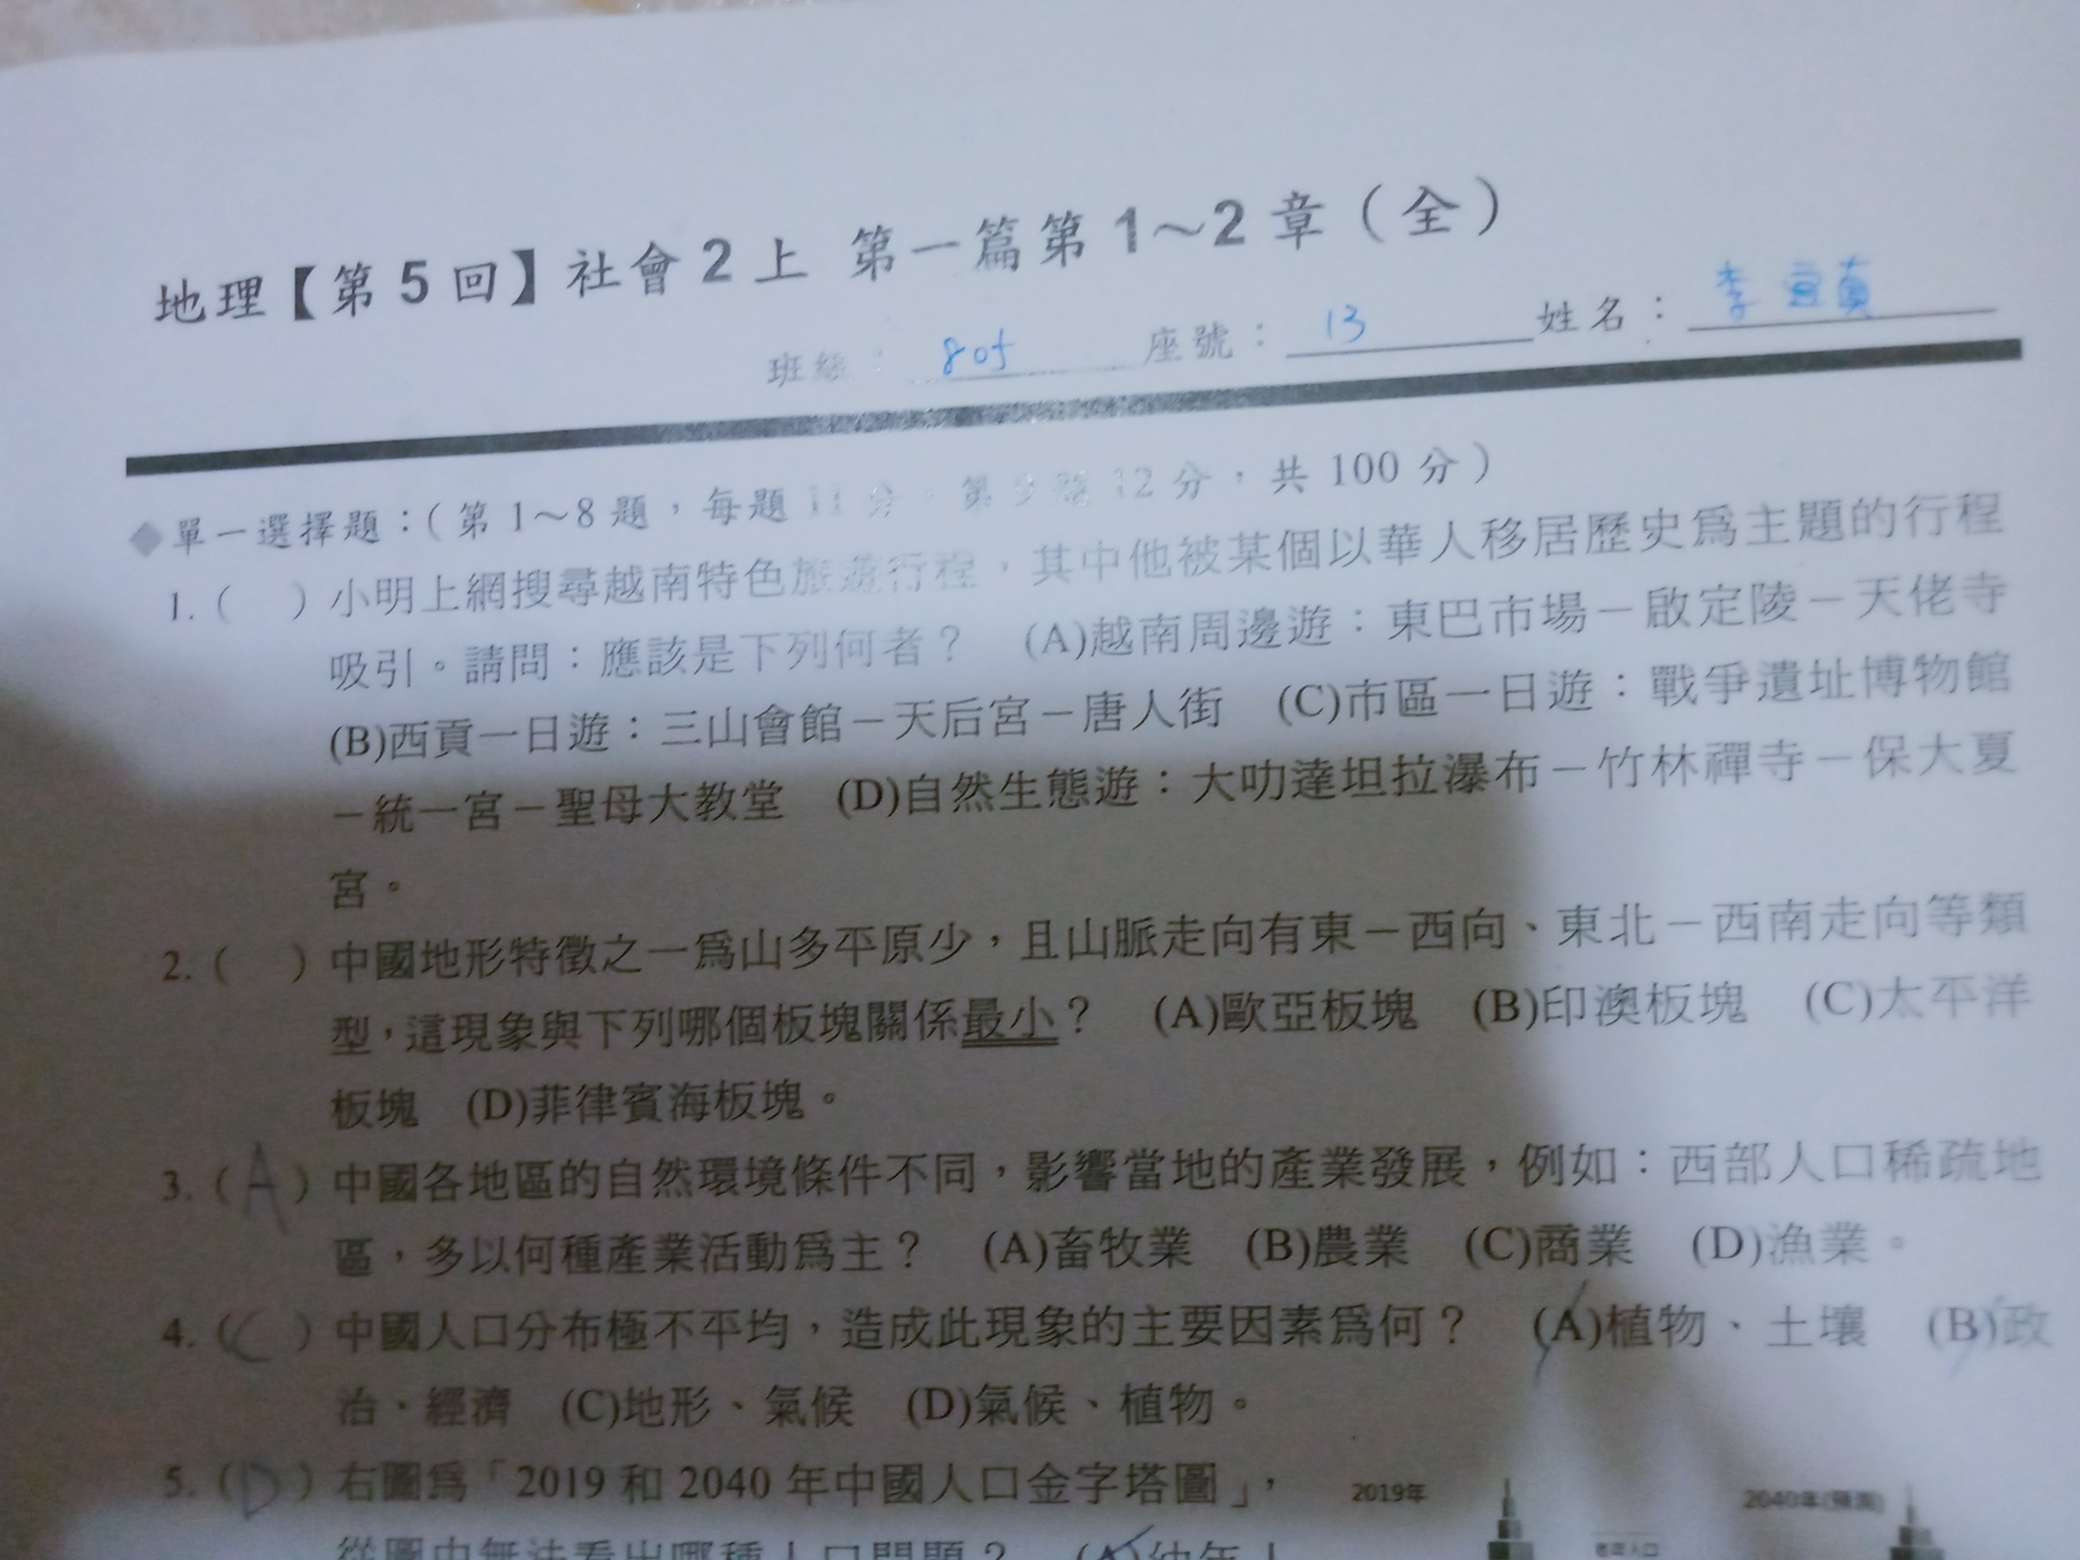 地理【第5回】社會2上 第一篇第1～2章（全）
班級： 805 座號： 13 姓名： 李宣
◆單一選擇題：（第1～8題，每題11分，第9題12分，共100分）
1.（ ）小明上網搜尋越南特色旅遊行程，其中他被某個以華人移居歷史爲主題的行程
吸引。請問：應該是下列何者？ (A)越南周邊遊：東巴市場－啟定陵－天佬寺
(B)西貢一日遊：三山會館－天后宮－唐人街 (C)市區一日遊：戰爭遺址博物館
－統一宮－聖母大教堂 (D)自然生態遊：大叻達坦拉瀑布－竹林禪寺－保大夏
宮。
2.（ ）中國地形特徵之一爲山多平原少，且山脈走向有東－西向、東北－西南走向等類
型，這現象與下列哪個板塊關係最小？ (A)歐亞板塊 (B)印澳板塊 (C)太平洋
板塊 (D)菲律賓海板塊。
3.（A）中國各地區的自然環境條件不同，影響當地的產業發展，例如：西部人口稀疏地
區，多以何種產業活動爲主？ (A)畜牧業 (B)農業 (C)商業 (D)漁業。
4.（C）中國人口分布極不平均，造成此現象的主要因素爲何？ (A)植物、土壤 (B)政
治、經濟 (C)地形、氣候 (D)氣候、植物。
5.（D）右圖爲「2019和2040年中國人口金字塔圖」，
2019年 2040年(預測)
從圖中無法看出哪種人口問題？ (A)幼年人
老年人口